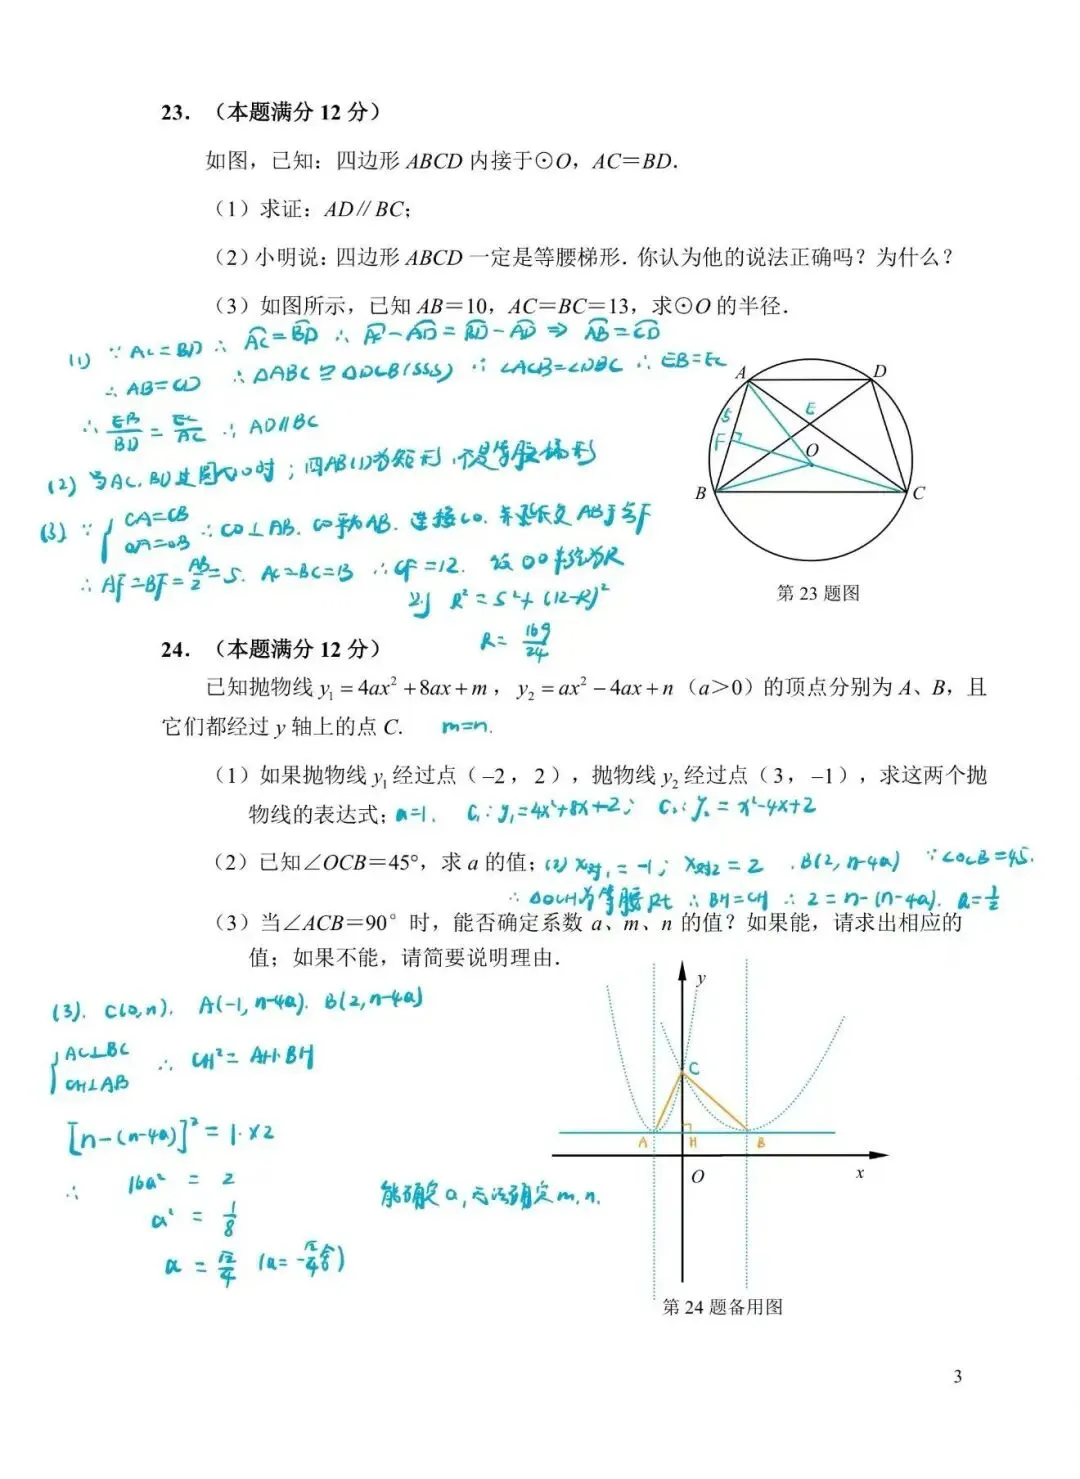 23. （本题满分 12 分）
如图，已知：四边形 ABCD 内接于⊙O，AC＝BD．
（1）求证：AD∥BC；
（2）小明说：四边形 ABCD 一定是等腰梯形．你认为他的说法正确吗？为什么？
（3）如图所示，已知 AB＝10，AC＝BC＝13，求⊙O 的半径．
(1) ∵ AC=BD ∴ A͡C=B͡D ∴ A͡C-A͡D=B͡D-A͡D ⇒ A͡B=C͡D
∴ AB=CD ∴ △ABC≅△DCB(SSS) ∴ ∠ACB=∠DBC ∴ EB=EC
∴ EB/BD = EC/AC ∴ AD∥BC
(2) 当AC、BD过圆心O时；四ABCD为矩形，不是等腰梯形
(3) ∵ { CA=CB OA=OB ∴ CO⊥AB. CO平分AB. 连接CO. 并延长交AB于点F
∴ AF=BF=AB/2=5. AC=BC=13 ∴ CF=12. 设⊙O半径为R
则 R²=5²+(12-R)²
R= 169/24
A D E 5 F O B C
第 23 题图
24. （本题满分 12 分）
已知抛物线 y₁ = 4ax² + 8ax + m ，y₂ = ax² − 4ax + n （a＞0）的顶点分别为 A、B，且
它们都经过 y 轴上的点 C. m=n.
（1）如果抛物线 y₁ 经过点（−2，2），抛物线 y₂ 经过点（3，−1），求这两个抛
物线的表达式; a=1. C₁: y₁=4x²+8x+2; C₂: y₂=x²-4x+2
（2）已知∠OCB＝45°，求 a 的值; (2) x对₁=-1; x对2=2 . B(2, n-4a) ∵∠OCB=45.
∴ △OCH为等腰Rt ∴ BH=CH ∴ 2=n-(n-4a). a=1/2
（3）当∠ACB＝90° 时，能否确定系数 a、m、n 的值？如果能，请求出相应的
值；如果不能，请简要说明理由．
(3). C(0,n). A(-1, n-4a). B(2, n-4a)
{ AC⊥BC CH⊥AB ∴ CH²=AH·BH
[n-(n-4a)]²=1×2
∴ 16a² = 2
a² = 1/8
a = √2/4 (a=-√2/4舍)
能确定a, 无法确定m.n.
y C A H B O x
第 24 题备用图
3